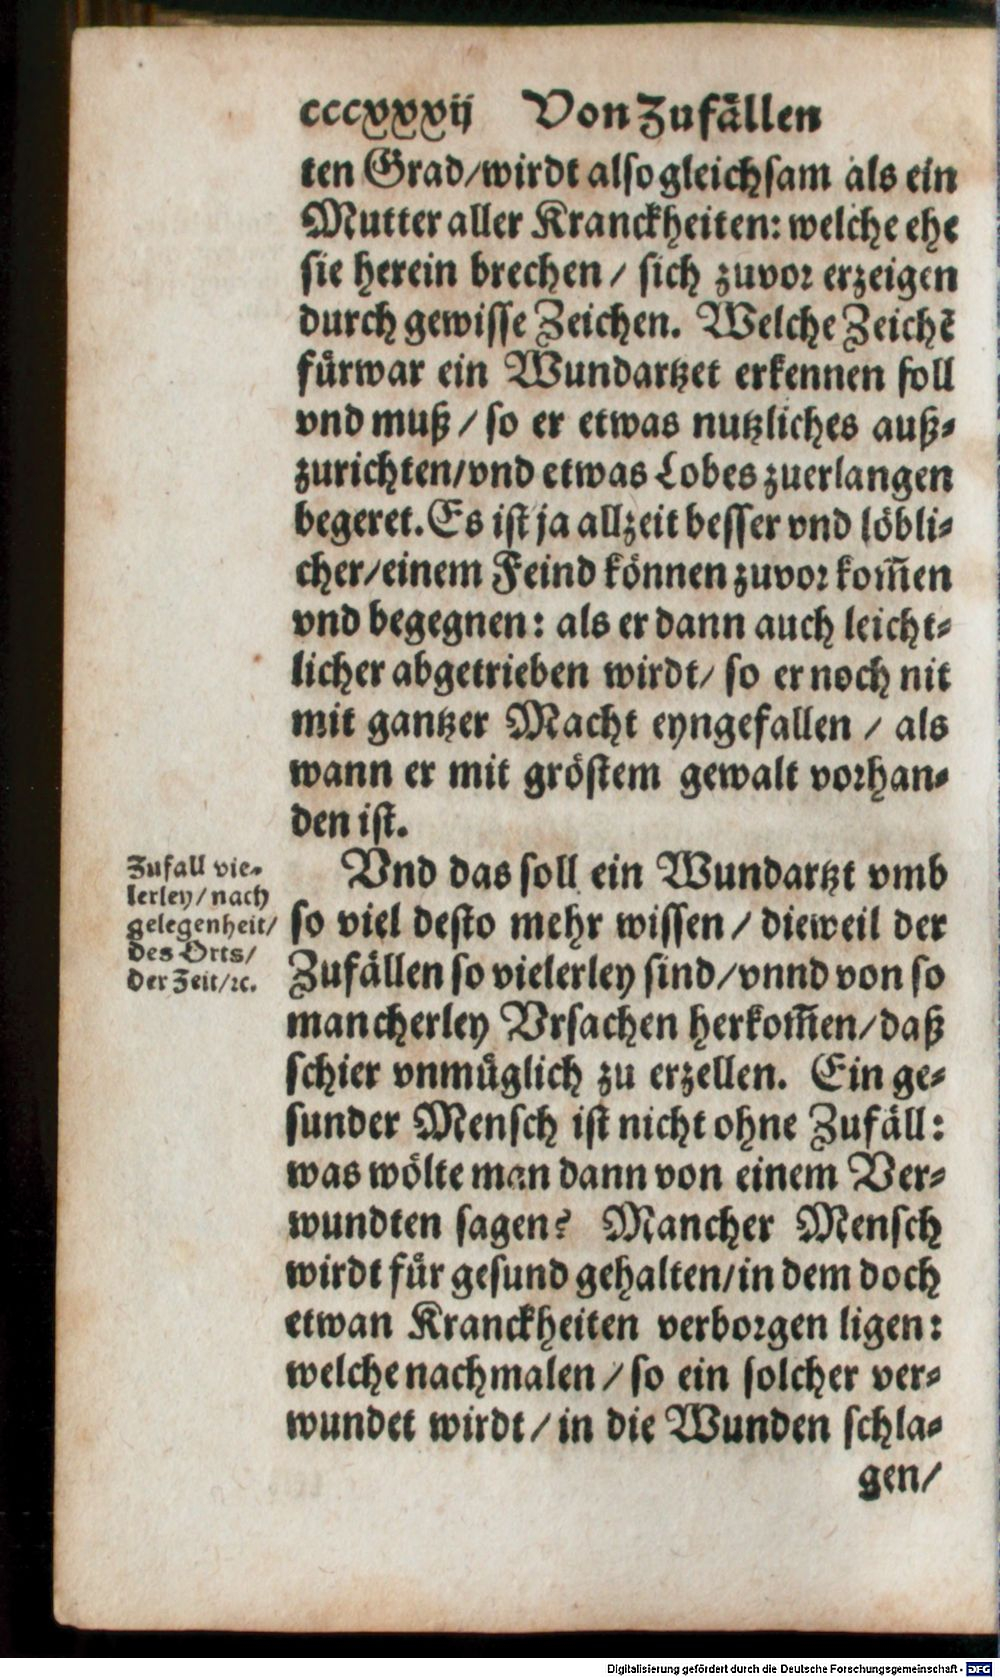 cccxxxij Von Zufällen
ten Grad/wirdt also gleichsam als ein
Mutter aller Kranckheiten: welche ehe
sie herein brechen / sich zuvor erzeigen
durch gewisse Zeichen. Welche Zeichẽ
fürwar ein Wundartzet erkennen soll
vnd muß / so er etwas nutzliches auß-
zurichten/vnd etwas Lobes zuerlangen
begeret. Es ist ja allzeit besser vnd löbli-
cher/einem Feind können zuvor kom̃en
vnd begegnen: als er dann auch leicht-
licher abgetrieben wirdt/ so er noch nit
mit gantzer Macht eyngefallen / als
wann er mit gröstem gewalt vorhan-
den ist.
Vnd das soll ein Wundartzt vmb
so viel desto mehr wissen / dieweil der
Zufällen so vielerley sind/vnnd von so
mancherley Vrsachen herkom̃en/daß
schier vnmüglich zu erzellen. Ein ge-
sunder Mensch ist nicht ohne Zufäll:
was wölte man dann von einem Ver-
wundten sagen? Mancher Mensch
wirdt für gesund gehalten/in dem doch
etwan Kranckheiten verborgen ligen:
welche nachmalen / so ein solcher ver-
wundet wirdt / in die Wunden schla-
gen/
Zufall vie-
lerley/ nach
gelegenheit/
des Orts/
der Zeit/ꝛc.
Digitalisierung gefördert durch die Deutsche Forschungsgemeinschaft - DFG